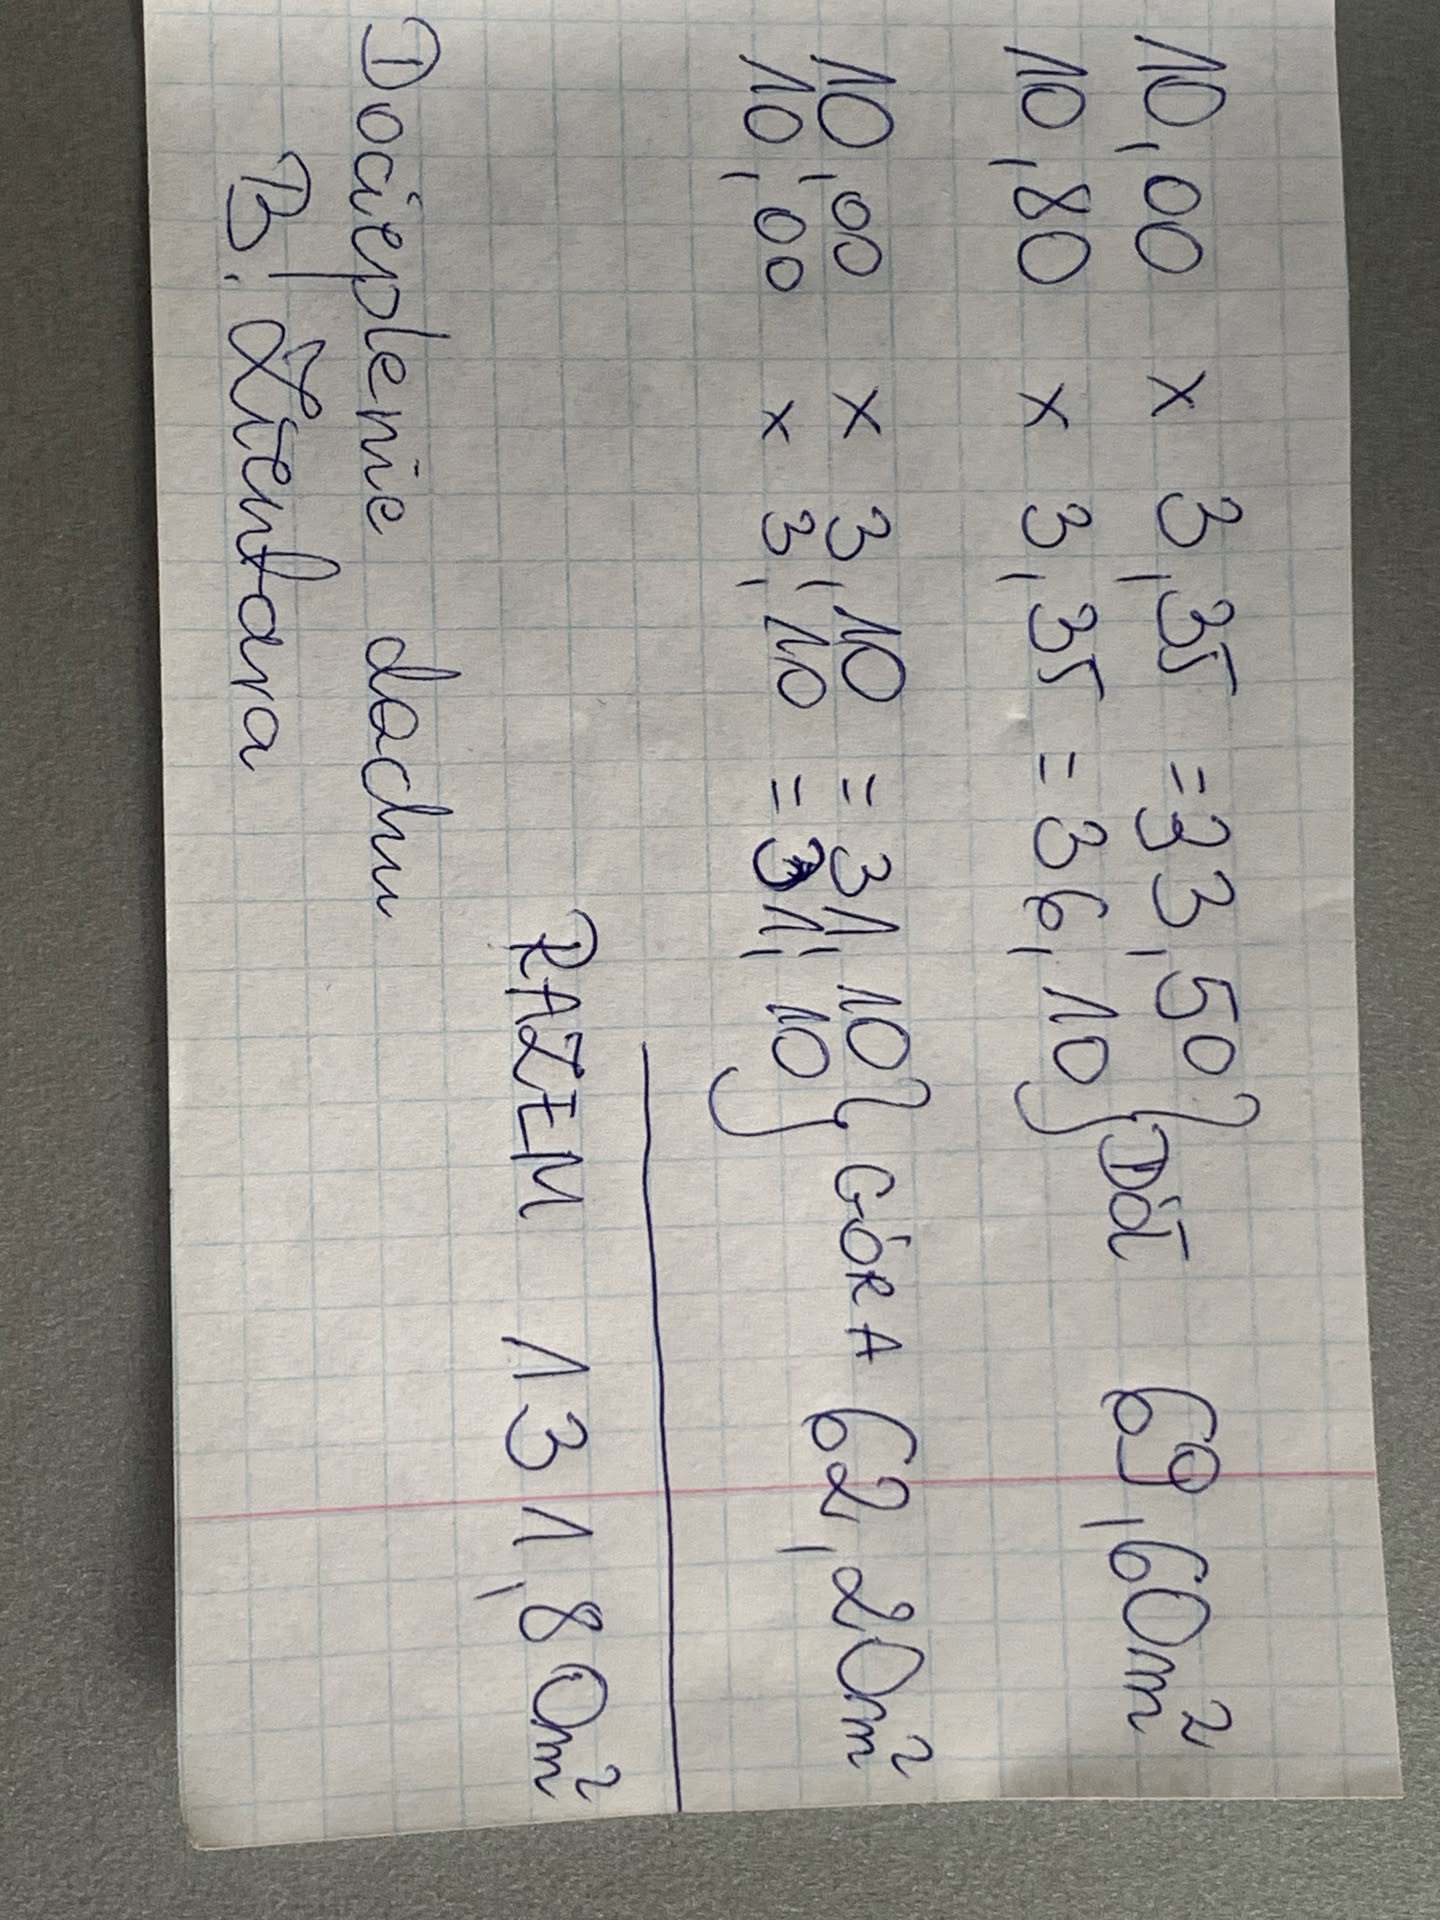 10,00 x 3,35 = 33,50 } DÓŁ 69,60m²
10,80 x 3,35 = 36,10
10,00 x 3,10 = 31,10 } GÓRA 62,20m²
10,00 x 3,10 = 31,10
RAZEM 131,80m²
Docieplenie dachu
B.